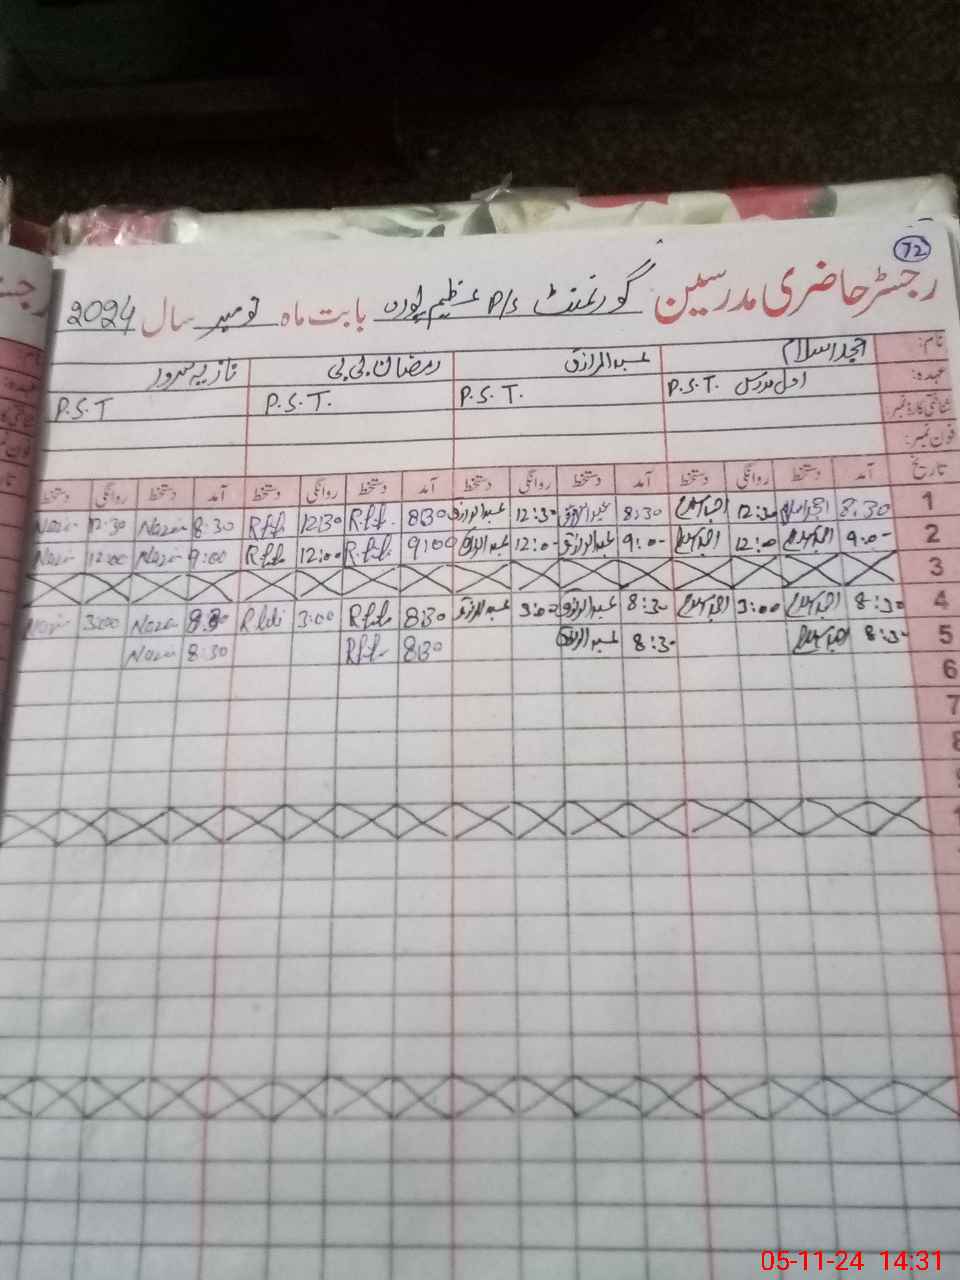 72
رجسٹر حاضری مدرسین گورنمنٹ P/S عظیم پورہ بابت ماہ نومبر سال 2024
نام: امجد اسلام عبدالرزاق رمضان بی بی نازیہ سرور
عہدہ: اول مدرس P.S.T. P.S.T. P.S.T. P.S.T
شناختی کارڈ نمبر:
فون نمبر:
تاریخ آمد دستخط روانگی دستخط آمد دستخط روانگی دستخط آمد دستخط روانگی دستخط آمد دستخط روانگی دستخط
1 8:30 12:30 8:30 عبدالرزاق 12:30 عبدالرزاق 8:30 12:30 8:30 Nazia 12:30 Nazia
2 9:00 12:00 9:00 عبدالرزاق 12:00 عبدالرزاق 9:00 12:00 9:00 Nazia 12:00 Nazia
3
4 8:30 3:00 8:30 عبدالرزاق 3:00 عبدالرزاق 8:30 3:00 8:30 Nazia 3:00
5 8:30 8:30 عبدالرزاق 8:30 8:30 Nazia
6
7
8
05-11-24 14:31